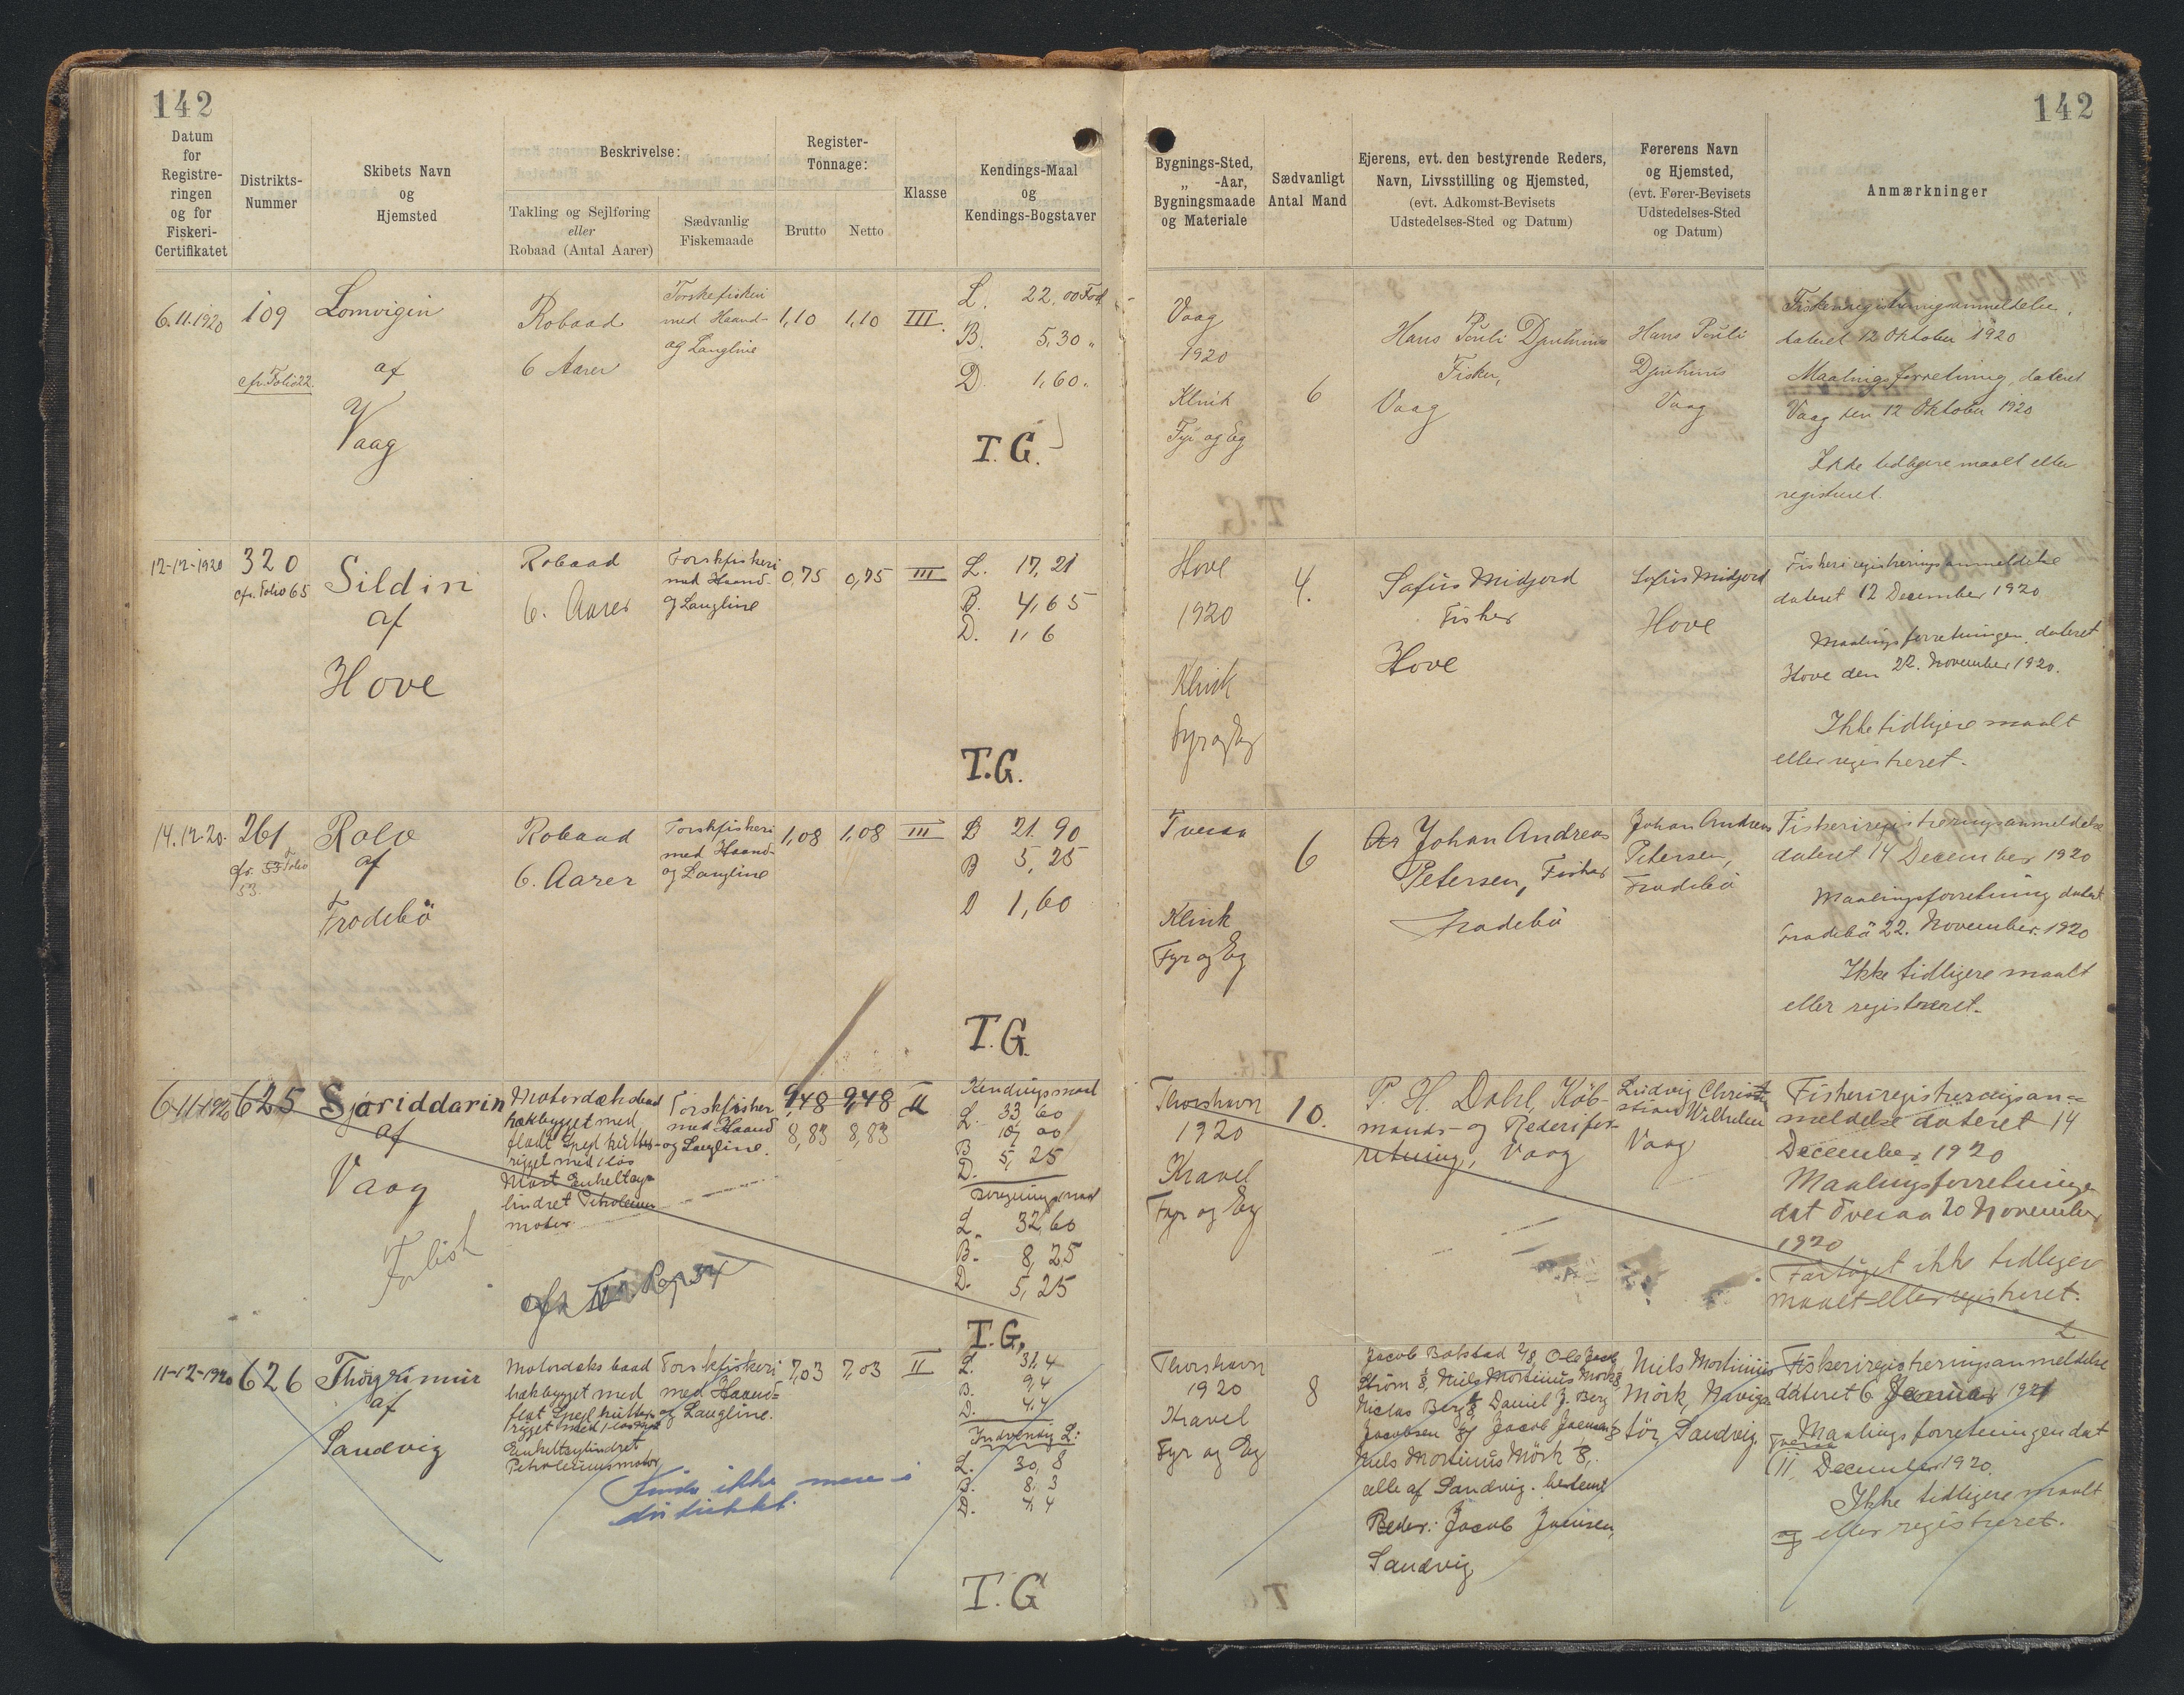 142
142
Datum
for
Registre-
ringen
og for
Fiskeri-
Certifikatet
Distrikts-
Nummer
Skibets Navn
og
Hjemsted
Beskrivelse:
Takling og Sejlføring
eller
Robaad (Antal Aarer)
Sædvanlig
Fiskemaade
Register-
Tonnage:
Brutto
Netto
Klasse
Kendings-Maal
og
Kendings-Bogstaver
Bygnings-Sted,
„ -Aar,
Bygningsmaade
og Materiale
Sædvanligt
Antal Mand
Ejerens, evt. den bestyrende Reders,
Navn, Livsstilling og Hjemsted,
(evt. Adkomst-Bevisets
Udstedelses-Sted og Datum)
Førerens Navn
og Hjemsted,
(evt. Fører-Bevisets
Udstedelses-Sted
og Datum)
Anmærkninger
6.11.1920
109
cfr. Folio 22.
Lomvigin
af
Vaag
Robaad
6 Aarer
Torskefiskeri
med Haand-
og Langline
1,10
1,10
III.
L. 22,00 Fod
B. 5,30 "
D. 1,60 "
T.G.
Vaag
1920
Klink
Fyr og Eg
6
Hans Pouli
Fisker,
Vaag
Hans Pouli
Vaag
Fiskeriregistreringsanmeldelse,
dateret 12 Oktober 1920
Maalingsforretning, dateret
Vaag den 12 Oktober 1920
Ikke tidligere maalt eller
registreret.
12-12-1920
320
cfr. Folio 65
Sildin
af
Hove
Robaad
6. Aarer
Torskfiskeri
med Haand-
og Langline
0,75
0,75
III
L. 17,21
B. 4,65
D. 1,6
T.G.
Hove
1920
Klink
Fyr og Eg
4.
Sofus Midjord
Fisker
Hove
Sofus Midjord
Hove
Fiskeriregistreringsanmeldelse
dateret 12 December 1920
Maalingsforretningen, dateret
Hove den 22. November 1920.
Ikke tidligere maalt
eller registreret.
14.12.20.
261
cfr. 53 Folio
53.
Rolo
af
Frodebö
Robaad
6. Aarer
Torskfiskeri
med Haand-
og Langline
1,08
1,08
III
L 21,90
B 5,25
D 1,60
T.G.
Tveraa
Klink
Fyr og Eg
6
Johan Andreas
Petersen, Fisker
Frodebö
Johan Andreas
Petersen,
Frodebö
Fiskeriregistreringsanmeldelse
dateret 14 December 1920
Maalingsforretning dateret
Frodebö 22. November. 1920
Ikke tidligere maalt
eller registreret.
6-11-1920
625
Sjóriddarin
af
Vaag
Forlist
Motordæksbaad
hækbygget med
fladt Spejl kutter-
rigget med 1 løs
Mast Enkeltcy-
lindret Petroleums
motor.
Torskfisker
med Haand
og Langline.
9,48
9,48
8,83
8,83
II
Kendingsmaal
L. 33 60
10, 00
B
D. 5, 25
L. 32,60
B. 8,25
D. 5,25
T.G.
Thorshavn
1920
Kravel
Fyr og Eg
10.
P. H. Dahl, Köb-
mands- og Rederifor-
retning, Vaag
Ludvig Christ-
Wilhelm
Vaag
Fiskeriregistreringsan-
meldelse dateret 14
December 1920
Maalingsforretninge
dat Tveraa 20 November
1920
Fartöjet ikke tidligere
maalt eller registreret.
11-12-1920
626
Thorgrimur
af
Sandvig
Motordæksbaad
hækbygget med
flat Spejl kutter-
rigget med 1 løs Mast
Enkeltcylindret
Petroleumsmotor
Torskfiskeri
med Haand-
og Langline.
Findes ikke mere i
distriktet.
7,03
7,03
II
L. 31,4
B. 9,4
D. 4,4
Indvendig L:
L. 30,8
B. 8,3
D. 4,4
T.G
Thorshavn
1920
Kravel
Fyr og Eg
8
Niels Mortinus Mörk 1/8,
alle af Sandvig.
Reder: Jacob Joensen,
Sandvig
Niels Mortinus
Mörk, Naviga-
tör, Sandvig.
Fiskeriregistreringsanmeldelse
dateret 6 Januar 1921
Maalingsforretningen dat
Tveraa
11. December 1920.
Ikke tidligere maalt
og eller registreret.